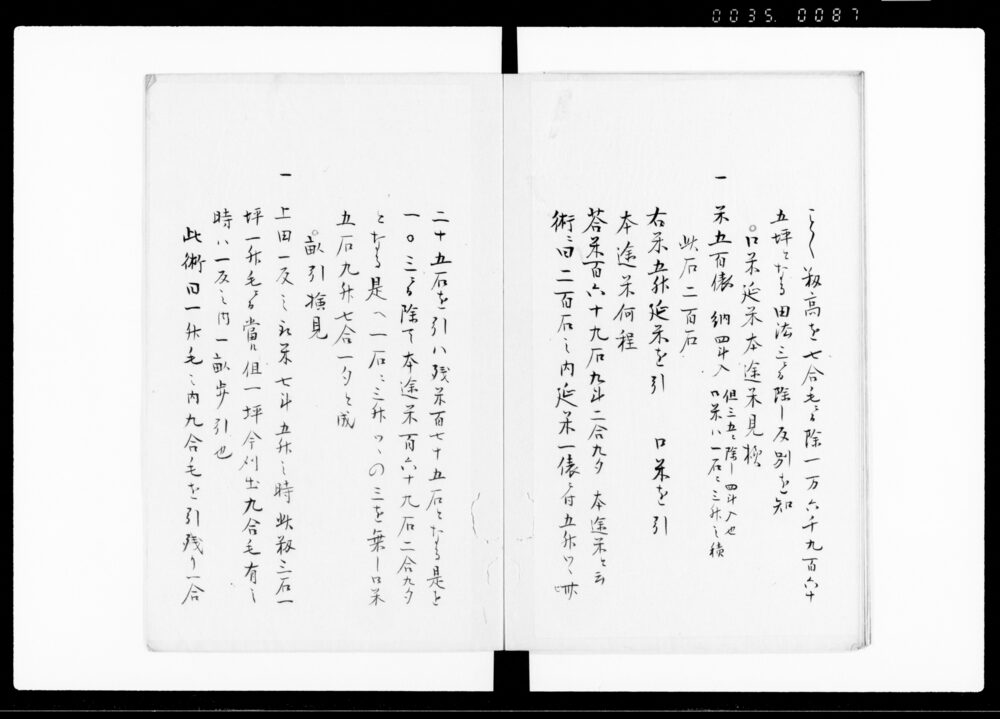 0035. 0087
籾高を七合毛ニ而除一万六千九百六十
五坪となる田法三ニ而除し反別を知
。口米延米本途米見様
一 米五百俵 納四斗入 但三五ニ除し四斗入也
口米ハ一石ニ三升之積
此石二百石
右米五升延米を引 口米を引
本途米何程
答米百六十九石九斗二合九夕 本途米と云
術ニ曰二百石之内延米一俵ニ付五升ツヽ
二十五石を引ハ残米百七十五石となる是を
一〇三ニ而除て本途米百六十九石二合九夕
となる是へ一石ニ三升ツヽの三を乗し口米
五石九升七合一夕と成
。畝引検見
一 上田一反之取米七斗五升之時此籾三石一
坪一升毛ニ當ル但一坪今刈出九合毛有之
時ハ一反之内一畝歩引也
此術曰一升毛之内九合毛を引残り一合